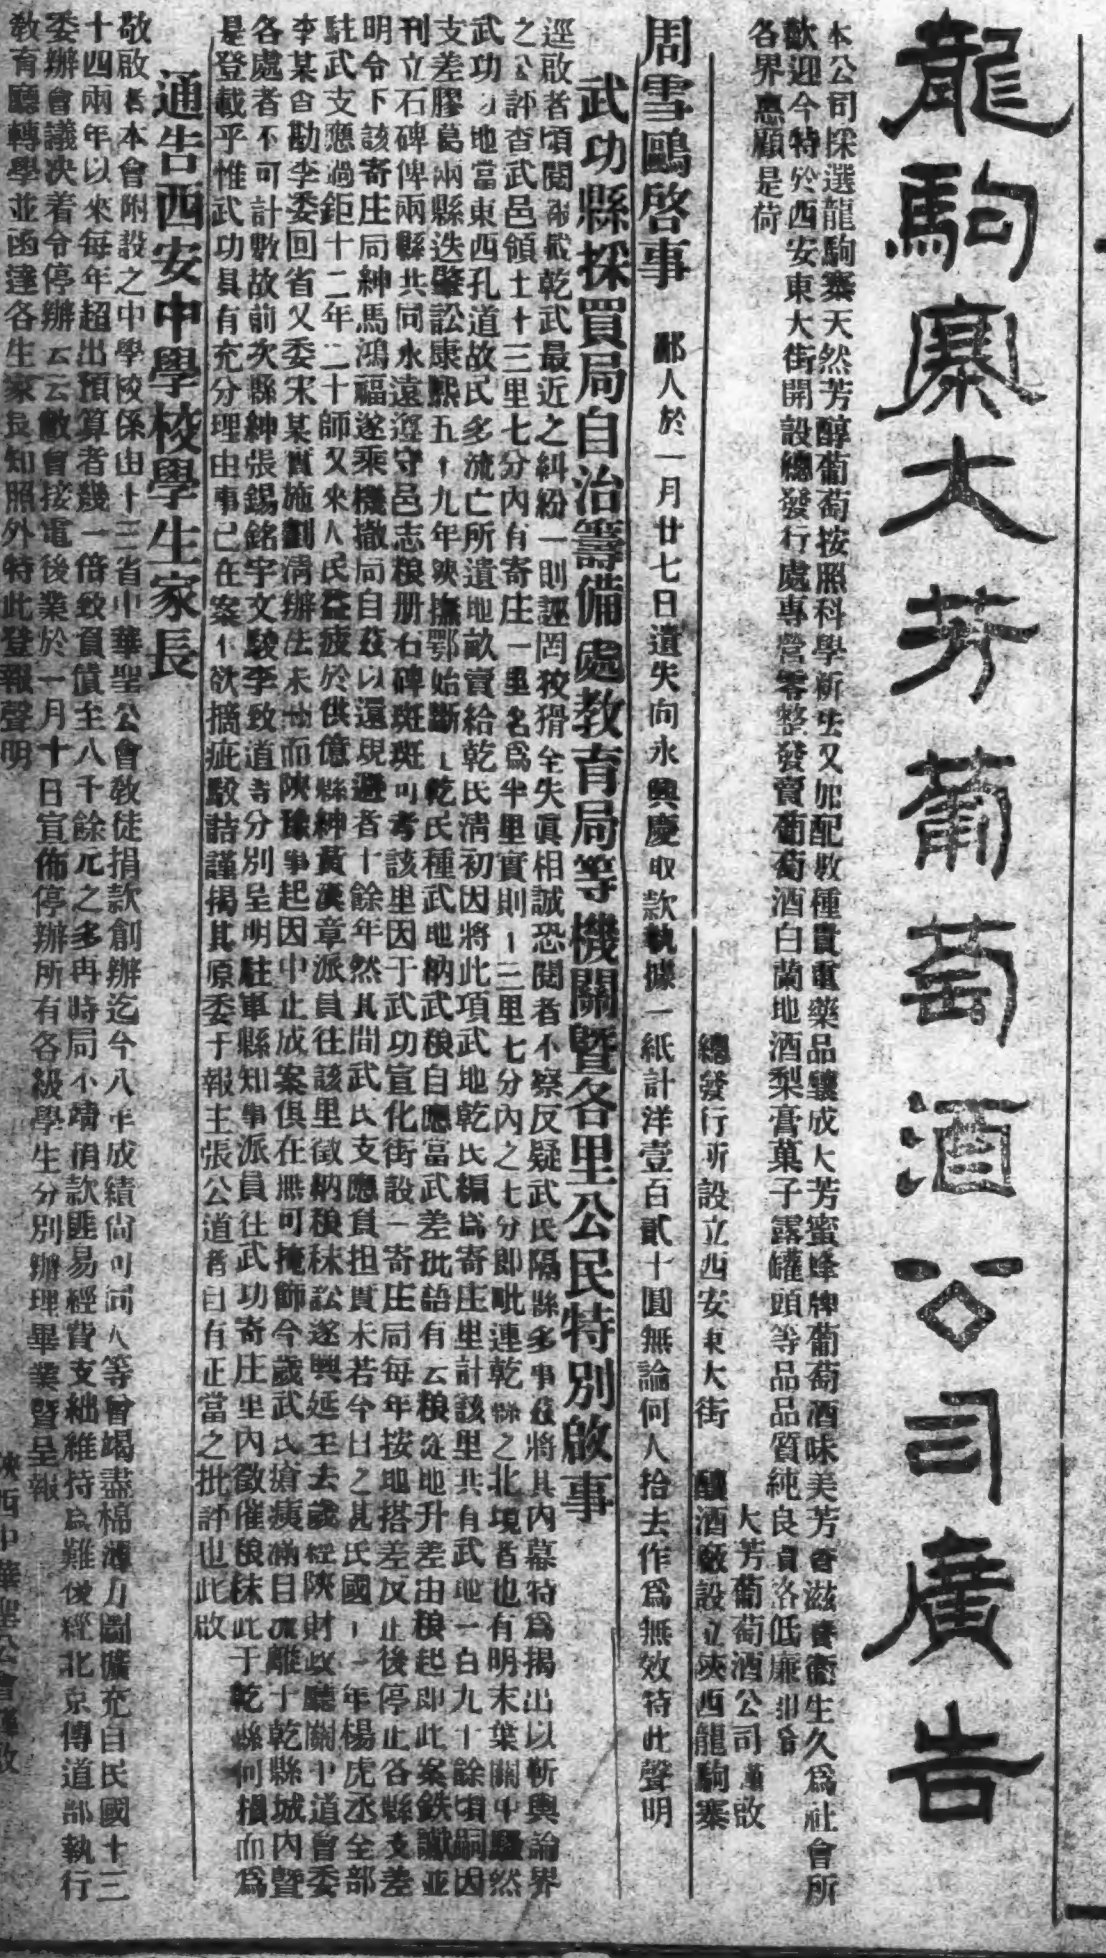 龍駒寨大芳葡萄酒公司廣告
本公司採選龍駒寨天然芳醇葡萄按照科學新法又加配數種貴重藥品釀成大芳蜜蜂牌葡萄酒味美芳香滋養衛生久爲社會所
歡迎今特於西安東大街開設總發行處專營零整發賣葡萄酒白蘭地酒梨膏菓子露罐頭等品品質純良價洛低廉
各界惠顧是荷
大芳葡萄酒公司謹啟
總發行所設立西安東大街 釀酒廠設立陝西龍駒寨
周雪鷗啓事 鄙人於一月廿七日遺失向永興慶取款執據一紙計洋壹百貳十圓無論何人拾去作爲無效特此聲明
武功縣採買局自治籌備處教育局等機關暨各里公民特別啟事
逕啟者頃閱 乾武最近之糾紛一則誣罔狡猾全失眞相誠恐閱者不察反疑武民隔縣多事茲將其內幕特爲揭出以靳輿論界
之公評查武邑領土十三里七分內有寄庄一里名爲半里實則十三里七分內之七分即毗連乾縣之北境者也有明末葉關中騷然
武功 地當東西孔道故民多流亡所遺地畝賣給乾民淸初因將此項武地乾民編爲寄庄里計該里共有武地一百九十餘頃嗣因
支差膠葛兩縣迭肇訟康熙五十九年陝撫鄂始斷 乾民種武地納武粮自應當武差批語有云粮從地升差由粮起即此案鉄讞並
刊立石碑俾兩縣共同永遠遵守邑志粮册石碑斑斑可考該里因于武功宣化街設一寄庄局每年按地搭差反正後停止各縣支差
明令下該寄庄局紳馬鴻福遂乘機撤局自茲以還規避者十餘年然其間武民支應負担實未若今日之甚民國十一年楊虎丞全部
駐武支應過鉅十二年二十師又來人民益疲於供億縣紳黃漢章派員往該里徵納粮秣訟遂興延至去歲經陝財政廳關中道會委
李某會勘李委回省又委宋某實施劃淸辦法未 而陝豫事起因中止成案俱在無可掩飾今歲武民瘡痍滿目 離十乾縣城內暨
各處者不可計數故前次縣紳張錫銘宇文駿李致道等分別呈明駐軍縣知事派員往武功寄庄里內徵催粮秣此于乾縣何損而爲
是登載乎惟武功具有充分理由事已在案不欲摘疵駁詰謹揭其原委于報主張公道者自有正當之批評也此啟
通告西安中學校學生家長
敬啟者本會附設之中學校係由十三省中華聖公會教徒捐款創辦迄今八年成績尚可 人等會竭盡棉薄力圖擴充自民國十三
十四兩年以來每年超出預算者幾一倍致負債至八千餘元之多再時局不靖捐款匪易經費支絀維持爲難後經北京傳道部執行
委辦會議决着令停辦云云敝會接電後業於一月十日宣佈停辦所有各級學生分別辦理畢業暨呈報
教育廳轉學並函達各生家長知照外特此登報聲明
陝西中華聖公會謹啟